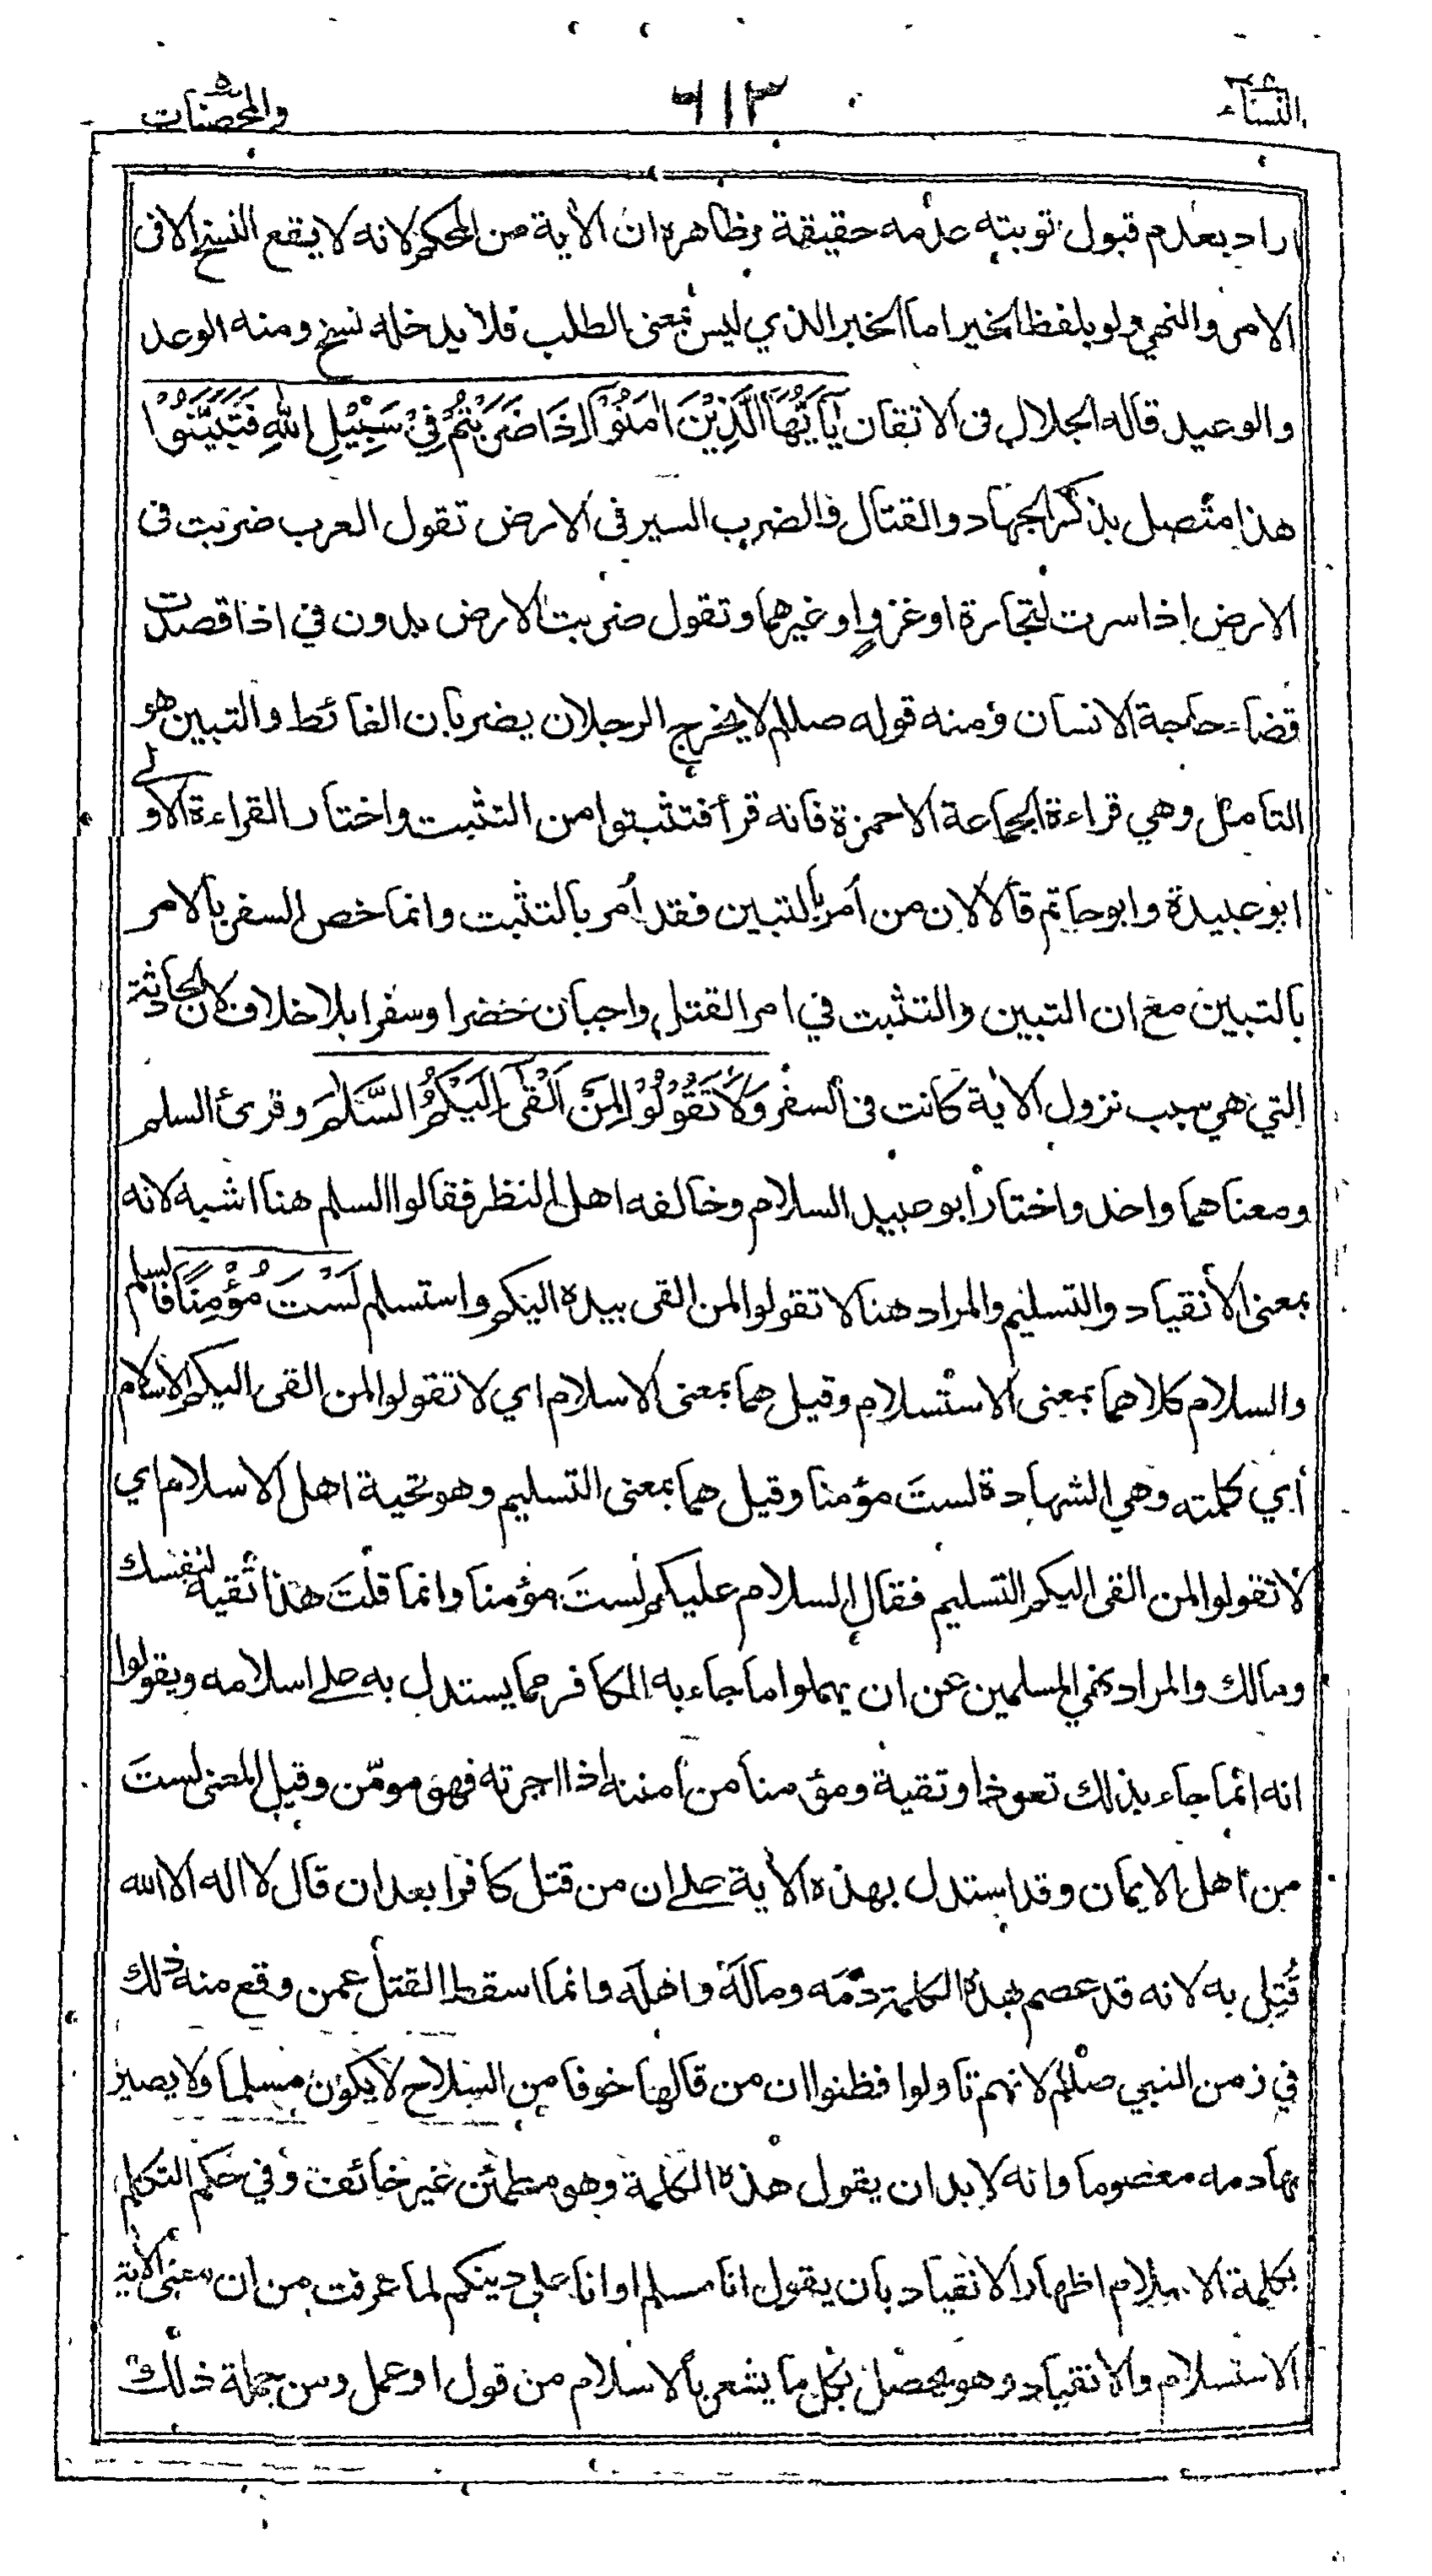 النساء ٤
٦١٣
والمحصنات ٥
اراد بعدم قبول توبته عدمه حقيقة وظاهره ان الآية من المحكم لانه لا يقع النسخ الا في
الامر والنهي ولو بلفظ الخبر اما الخبر الذي ليس بمعنى الطلب فلا يدخله نسخ ومنه الوعد
والوعيد قاله الجلال في الاتقان يَآ اَيُّهَا الَّذِيْنَ اٰمَنُوْٓا اِذَا ضَرَبْتُمْ فِيْ سَبِيْلِ اللهِ فَتَبَيَّنُوْا
هذا متصل بذكر الجهاد والقتال والضرب السير في الارض تقول العرب ضربت في
الارض اذا سرت لتجارة او غزو او غيرهما وتقول ضربت الارض بدون في اذا قصدت
قضاء حاجة الانسان ومنه قوله صللم لا يخرج الرجلان يضربان الغائط والتبين هو
التأمل وهي قراءة الجماعة الا حمزة فانه قرأ فتثبتوا من التثبت واختار القراءة الاولى
ابو عبيدة وابو حاتم قالا لان من أمر بالتبين فقد أمر بالتثبت وانما خص السفر بالامر
بالتبين مع ان التبين والتثبت في امر القتل واجبان حضرا وسفرا بلا خلاف لان الحادثة
التي هي سبب نزول الآية كانت في السفر وَلَا تَقُوْلُوْا لِمَنْ اَلْقٰٓى اِلَيْكُمُ السَّلٰمَ وقرئ السلم
ومعناهما واحد واختار ابو عبيد السلام وخالفه اهل النظر فقالوا السلم هنا اشبه لانه
بمعنى الانقياد والتسليم والمراد هنا لا تقولوا لمن القى بيده اليكم واستسلم لَسْتَ مُؤْمِنًا فالسلم
والسلام كلاهما بمعنى الاستسلام وقيل هما بمعنى الاسلام اي لا تقولوا لمن القى اليكم الاسلام
أي كلمته وهي الشهادة لستَ مؤمنا وقيل هما بمعنى التسليم وهو تحية اهل الاسلام اي
لا تقولوا لمن القى اليكم التسليم فقال السلام عليكم لستَ مؤمنا وانما قلتَ هذا تقية لنفسك
ومالك والمراد نهي المسلمين عن ان يهملوا ما جاء به الكافر مما يستدل به على اسلامه ويقولوا
انه انما جاء بذلك تعوذا وتقية ومؤمنا من أمنته اذا اجرته فهو مومّن وقيل المعنى لستَ
من أهل الايمان وقد استدل بهذه الآية على ان من قتل كافرا بعد ان قال لا اله الا الله
قُتِل به لانه قد عصم بهذه الكلمة دمه وماله واهله وانما اسقط القتل عمن وقع منه ذلك
في زمن النبي صللم لانهم تأولوا فظنوا ان من قالها خوفا من السلاح لا يكون مسلما ولا يصير
بها دمه معصوما وانه لا بد ان يقول هذه الكلمة وهو مطمئن غير خائف وفي حكم التكلم
بكلمة الاسلام اظهار الانقياد بان يقول انا مسلم او انا على دينكم لما عرفت من ان معنى الآية
الاستسلام والانقياد وهو يحصل بكل ما يشعر بالاسلام من قول او عمل ومن جملة ذلك